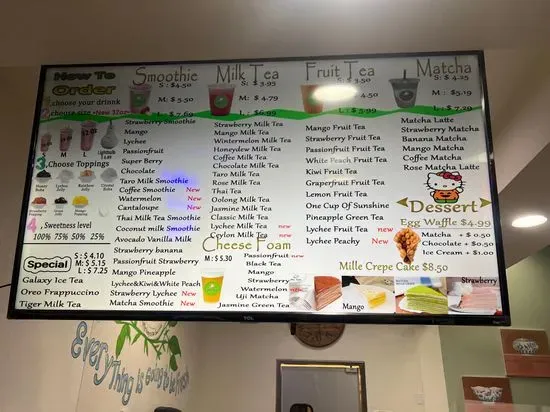 How To
Order
1.choose your drinnk
2.choose size •New 32oz
M
L
3. Choose Toppings
4. Sweetness level
100% 75% 50% 25%
Special
S : $ 4.10
M: $ 5.15
L : $ 7.25
Galaxy Ice Tea
Oreo Frappuccino
Tiger Milk Tea
Smoothie
S : $4.50
M : $ 5.50
L : $ 7.69
Strawberry Smoothie
Mango
Lychee
Passionfruit
Super Berry
Chocolate
Taro Milk Smoothie
Coffee Smoothie New
Watermelon New
Cantaloupe New
Thai Milk Tea Smoothie
Coconut milk Smoothie
Avocado Vanilla Milk
Strawberry banana
Passionfruit Strawberry
Mango Pineapple
Lychee&Kiwi&White Peach
Strawberry Lychee New
Matcha Smoothie New
Milk Tea
S : $ 3.95
M : $ 4.79
L : $6.99
Strawberry Milk Tea
Mango Milk Tea
Wintermelon Milk Tea
Honeydew Milk Tea
Coffee Milk Tea
Chocolate Milk Tea
Taro Milk Tea
Rose Milk Tea
Thai Tea
Oolong Milk Tea
Jasmine Milk Tea
Classic Milk Tea
Lychee Milk Tea new
Ceylon Milk Tea new
Cheese Foam
M : $ 5.30
Passionfruit new
Black Tea
Mango
Strawberry
Watermelon new
Uji Matcha
Jasmine Green Tea
Fruit Tea
S : $ 3.50
M : $ 4.50
L : $ 5.99
Mango Fruit Tea
Strawberry Fruit Tea
Passionfruit Fruit Tea
White Peach Fruit Tea
Kiwi Fruit Tea
Graperfruit Fruit Tea
Lemon Fruit Tea
One Cup Of Sunshine
Pineapple Green Tea
Lychee Fruit Tea new
Lychee Peachy New
Matcha
S : $ 4.25
M : $5.19
L : $ 7.29
Matcha Latte
Strawberry Matcha
Banana Matcha
Mango Matcha
Coffee Matcha
Rose Matcha Latte
Dessert
Egg Waffle $4.99
Matcha + $0.50
Chocolate + $0.50
Ice Cream + $1.00
Mille Crepe Cake $8.50
Mango
Strawberry
TCL
Everything is going to be